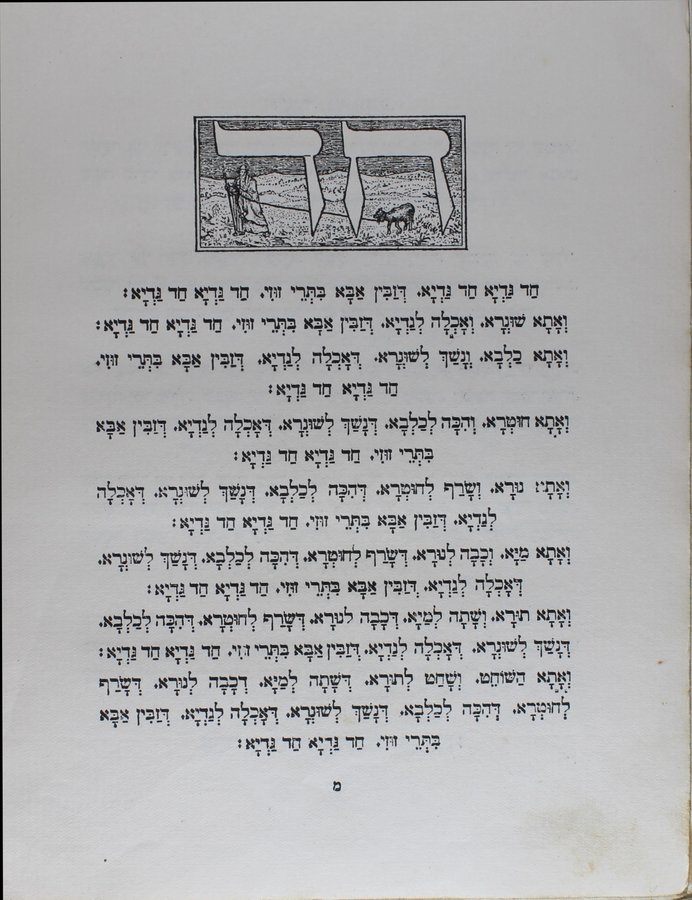 חד
חַד גַּדְיָא חַד גַּדְיָא. דְּזַבִּין אַבָּא בִּתְרֵי זוּזֵי. חַד גַּדְיָא חַד גַּדְיָא:
וְאָתָא שׁוּנְרָא. וְאָכְלָה לְגַדְיָא. דְּזַבִּין אַבָּא בִּתְרֵי זוּזֵי. חַד גַּדְיָא חַד גַּדְיָא:
וְאָתָא כַלְבָּא. וְנָשַׁךְ לְשׁוּנְרָא. דְּאָכְלָה לְגַדְיָא. דְּזַבִּין אַבָּא בִּתְרֵי זוּזֵי.
חַד גַּדְיָא חַד גַּדְיָא:
וְאָתָא חוּטְרָא. וְהִכָּה לְכַלְבָּא. דְּנָשַׁךְ לְשׁוּנְרָא. דְּאָכְלָה לְגַדְיָא. דְּזַבִּין אַבָּא
בִּתְרֵי זוּזֵי. חַד גַּדְיָא חַד גַּדְיָא:
וְאָתָא נוּרָא. וְשָׂרַף לְחוּטְרָא. דְּהִכָּה לְכַלְבָּא. דְּנָשַׁךְ לְשׁוּנְרָא. דְּאָכְלָה
לְגַדְיָא. דְּזַבִּין אַבָּא בִּתְרֵי זוּזֵי. חַד גַּדְיָא חַד גַּדְיָא:
וְאָתָא מַיָּא. וְכָבָה לְנוּרָא. דְּשָׂרַף לְחוּטְרָא. דְּהִכָּה לְכַלְבָּא. דְּנָשַׁךְ לְשׁוּנְרָא.
דְּאָכְלָה לְגַדְיָא. דְּזַבִּין אַבָּא בִּתְרֵי זוּזֵי. חַד גַּדְיָא חַד גַּדְיָא:
וְאָתָא תוֹרָא. וְשָׁתָה לְמַיָּא. דְּכָבָה לְנוּרָא. דְּשָׂרַף לְחוּטְרָא. דְּהִכָּה לְכַלְבָּא.
דְּנָשַׁךְ לְשׁוּנְרָא. דְּאָכְלָה לְגַדְיָא. דְּזַבִּין אַבָּא בִּתְרֵי זוּזֵי. חַד גַּדְיָא חַד גַּדְיָא:
וְאָתָא הַשּׁוֹחֵט. וְשָׁחַט לְתוֹרָא. דְּשָׁתָה לְמַיָּא. דְּכָבָה לְנוּרָא. דְּשָׂרַף
לְחוּטְרָא. דְּהִכָּה לְכַלְבָּא. דְּנָשַׁךְ לְשׁוּנְרָא. דְּאָכְלָה לְגַדְיָא. דְּזַבִּין אַבָּא
בִּתְרֵי זוּזֵי. חַד גַּדְיָא חַד גַּדְיָא:
מ